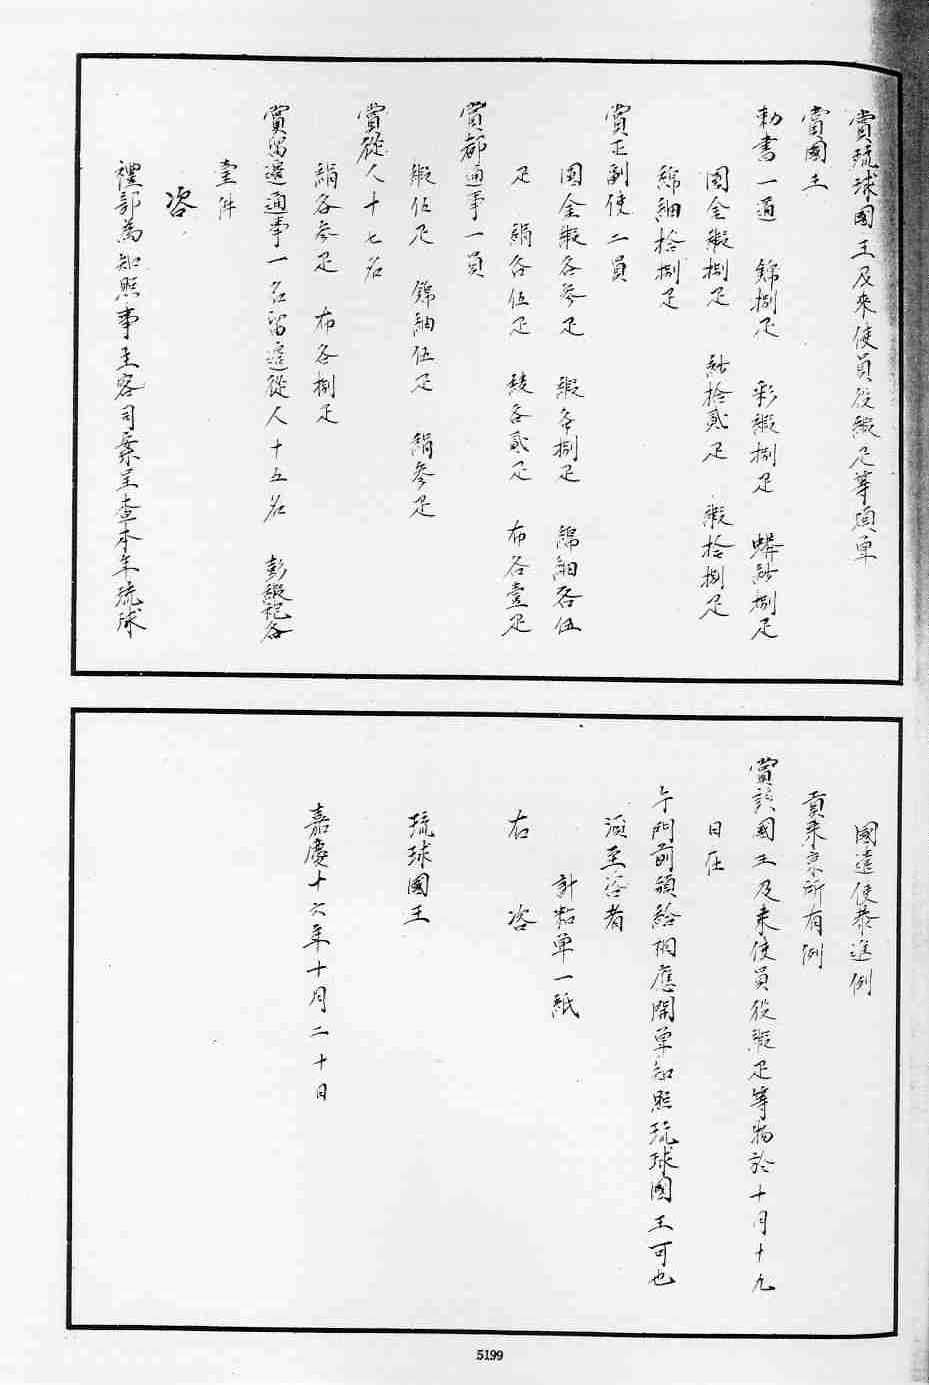 賞琉球國王及來使員役緞疋等項單
賞國王
勅書一道　錦捌疋　彩緞捌疋　蟒紗捌疋
團金緞捌疋　紗拾貳疋　緞拾捌疋
綿紬拾捌疋
賞正副使二員
團金緞各參疋　緞各捌疋　綿紬各伍
疋　絹各伍疋　綾各貳疋　布各壹疋
賞都通事一員
緞伍疋　綿紬伍疋　絹參疋
賞從人十七名
絹各參疋　布各捌疋
賞留邊通事一名留邊從人十五名　彭緞袍各
壹件
咨
禮部為知照事主客司案呈查本年琉球
國遣使恭進例
貢來京所有例
賞該國王及來使員役緞疋等物於十月十九
日在
午門前頒給相應開單知照琉球國王可也
須至咨者
計粘單一紙
右　咨
琉球國王
嘉慶十六年十月二十日
5199